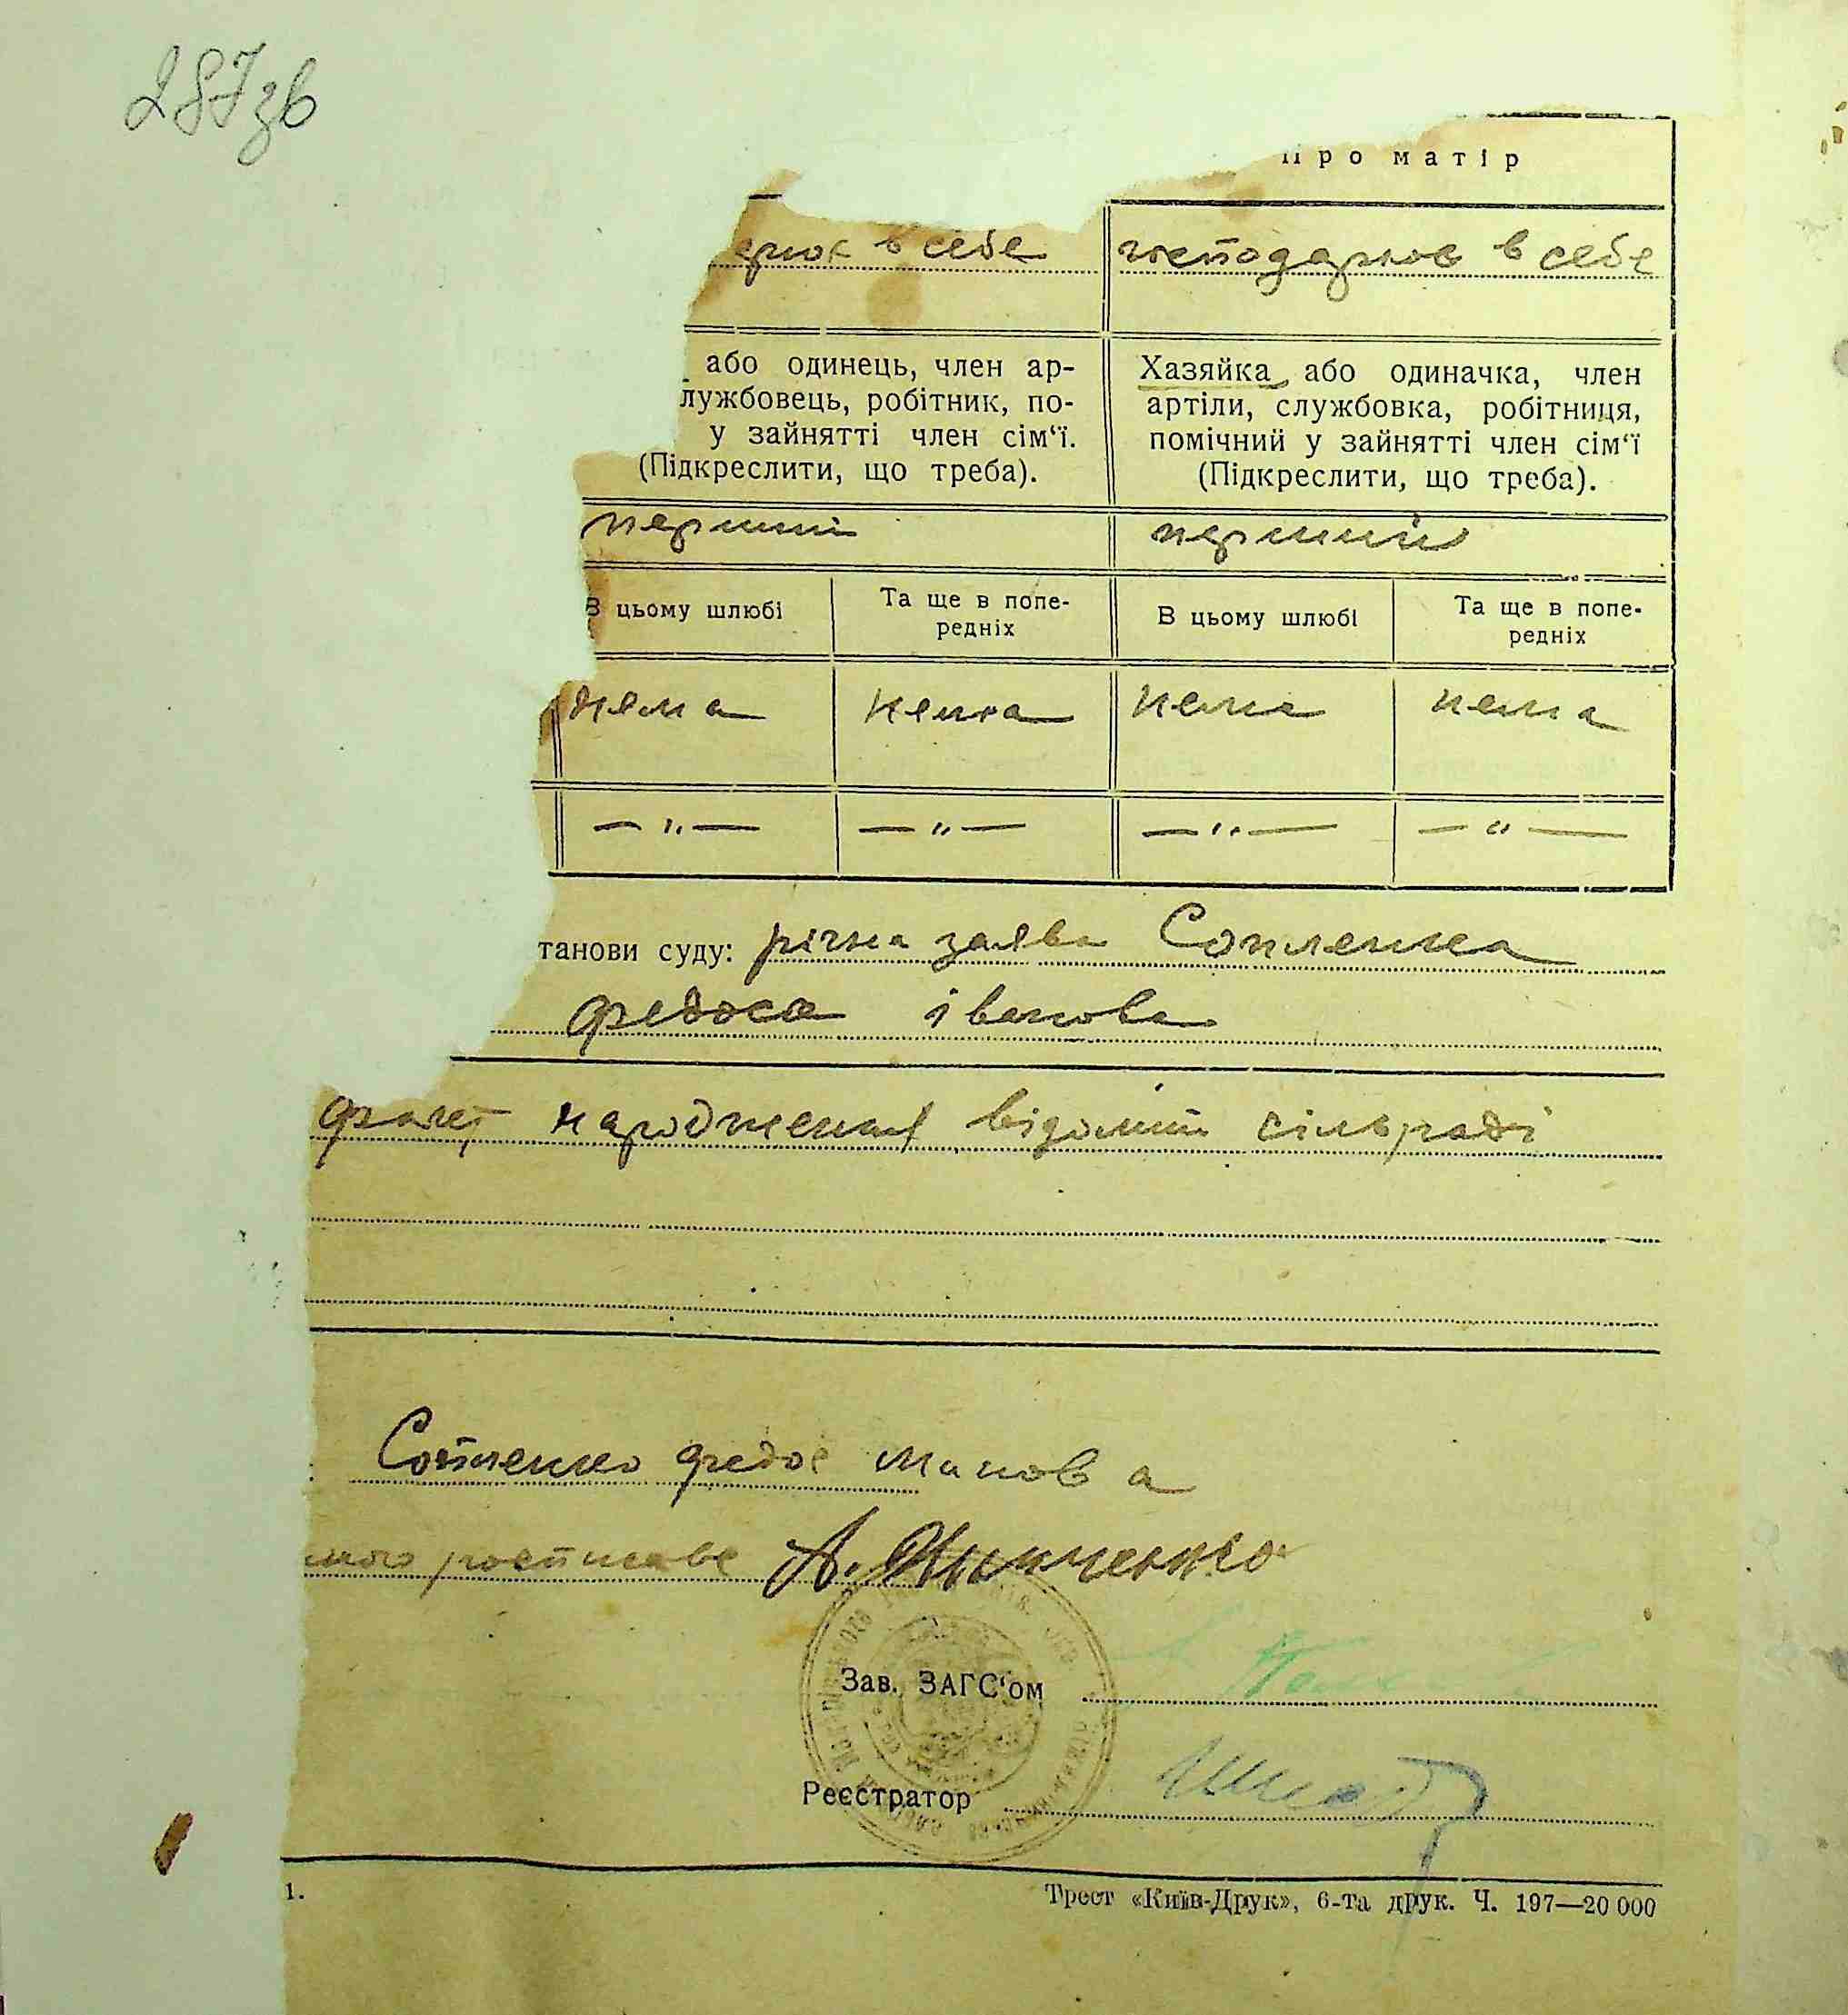 287зв
про матір
в себе господарює в себе
або одинець, член ар-
лужбовець, робітник, по-
у зайнятті член сім‘ї.
(Підкреслити, що треба).
Хазяйка або одиначка, член
артіли, службовка, робітниця,
помічний у зайнятті член сім‘ї
(Підкреслити, що треба).
перший перший
В цьому шлюбі Та ще в попе-
редніх В цьому шлюбі Та ще в попе-
редніх
нема нема нема нема
— „ — — „ — — „ — — „ —
танови суду: річна заява Сопленка
федоса іванова
факт народження відомий сільраді
Сопленко федос
росписавс А.
Зав. ЗАГС‘ом
Реєстратор
1. Трест «Київ-Друк», 6-та друк. Ч. 197—20 000